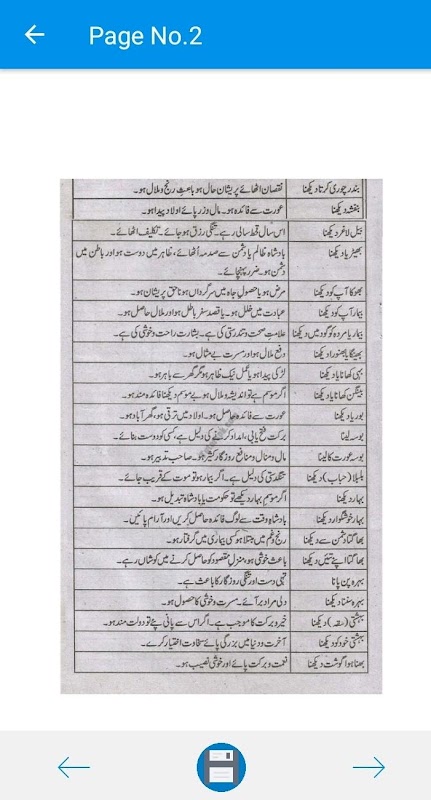 Page No.2
بندر چوری کرتا دیکھنا نقصان اٹھائے پریشان حال ہو باعث رنج و ملال ہو۔
بنفشہ دیکھنا عورت سے فائدہ ہو۔ مال وزر پائے اولاد پیدا ہو۔
بیل لاغر دیکھنا اس سال قحط سالی رہے۔ تنگی رزق ہو جائے۔ تکلیف اٹھائے۔
بھیڑیا دیکھنا بادشاہ ظالم یا دشمن سے صدمہ اُٹھائے، ظاہر میں دوست ہو اور باطن میں
دشمن ہو۔ ضرر پہنچائے۔
بھوکا آپ کو دیکھنا مرض ہو یا حصول جاہ میں سرگرداں ہو ناحق پریشان ہو۔
بیمار آپ کو دیکھنا عبادت میں خلل ہو۔ یا قصد سفر باطل ہو اور ملال حاصل ہو۔
بیمار یا مردہ کو گود میں دیکھنا علامت صحت و تندرستی کی ہے۔ بشارت راحت و خوشی کی ہے۔
بھینگا یا بھنورا دیکھنا دفع ملال ہو اور مسرت بے مثال ہو۔
بہی کھانا یا دیکھنا لڑکی پیدا ہو یا عمل نیک ظاہر ہو مگر گھر سے باہر ہو۔
بینگن کھانا یا دیکھنا اگر موسم ہے تو اندیشہ و ملال ہو بے موسم دیکھنا فائدہ مند ہو۔
بوریا دیکھنا عورت سے فائدہ حاصل ہو۔ اولاد میں ترقی ہو، گھر آباد ہو۔
بوسہ لینا برکت فتح یابی، امداد کرنے کی دلیل ہے، کسی کو دوست بنائے۔
بوسہ عورت کا لینا مال و منال و منافع روزگار کثیر ہو۔ صاحب تدبیر ہو۔
بلبلا (حباب) دیکھنا تنگدستی کی دلیل ہے۔ اگر بیمار ہو تو موت کے قریب جائے۔
بہار دیکھنا اگر موسم بہار دیکھے تو حکومت یا بادشاہ تبدیل ہو۔
بہار خوشگوار دیکھنا بادشاہ وقت سے لوگ فائدہ حاصل کریں اور آرام پائیں۔
بھاگتا دشمن سے دیکھنا رنج و غم میں مبتلا ہو کسی بیماری میں گرفتار ہو۔
بھاگتا اپنے تئیں دیکھنا باعث خوشی ہو، منزل مقصود کو حاصل کرنے میں کوشاں رہے۔
بہرہ پن پانا تہی دست اور تنگی روزگار کا باعث ہے۔
بہرہ سنتا دیکھنا دلی مراد بر آئے۔ مسرت و خوشی کا حصول ہو۔
بہشتی (سقہ) دیکھنا خیر و برکت کا موجب ہے۔ اگر اس سے پانی پئے تو دولت مند ہو۔
بہشتی خود کو دیکھنا آخرت و دنیا میں بزرگی پائے سخاوت اختیار کرے۔
بھنا ہوا گوشت دیکھنا نعمت و برکت پائے اور خوشی نصیب ہو۔